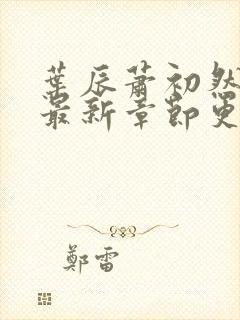 葉辰蕭初然
最新章節更
鄭雷